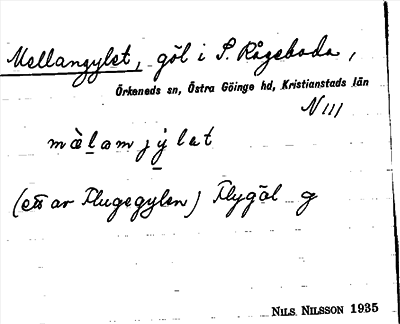 Mellangylet, göl i S. Rågeboda,
Örkeneds sn, Östra Göinge hd, Kristianstads län
N III
mèlamjýlet
(ett av Flugegylen) Flygöl g
NILS NILSSON 1935